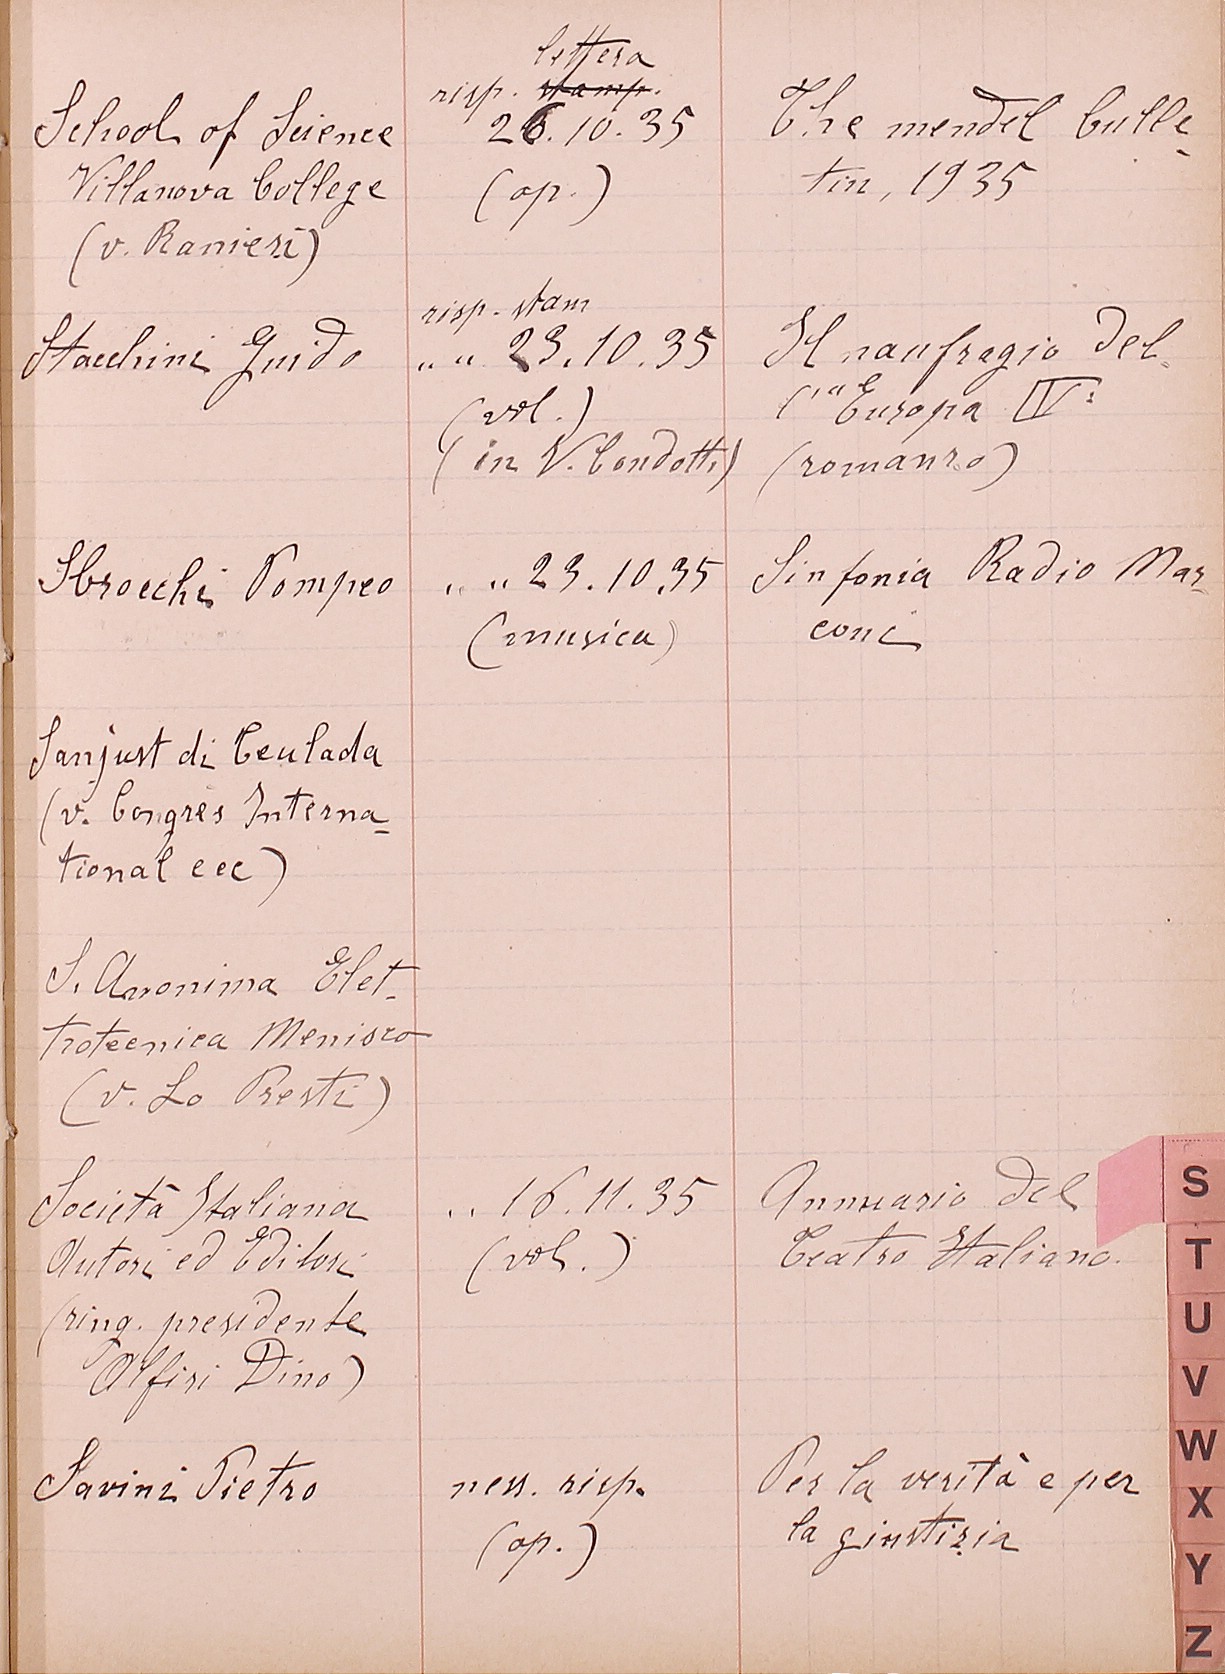 lettera
risp. stamp.
School of Science 26.10.35 The mendel bulle-
Villanova College (op.) tin, 1935
(v. Ranieri)
risp. stam
Stacchini Guido „ „ 23.10.35 Il naufragio del-
(vol.) l'"Europa IV:
(in V. Condotti) (romanzo)
Sbrocchi Pompeo „ „ 23.10.35 Sinfonia Radio Mar-
(musica) coni
Sanjust di Teulada
(v. Congrès Interna-
tional ecc)
S. Anonima Elet-
trotecnica Menisro
(v. Lo Presti)
Società Italiana „ 16.11.35 Annuario del
Autori ed Editori (vol.) Teatro Italiano.
(ring. presidente
Alfiri Dino)
Savini Pietro ness. risp. Per la verità e per
(op.) la giustizia
S
T
U
V
W
X
Y
Z